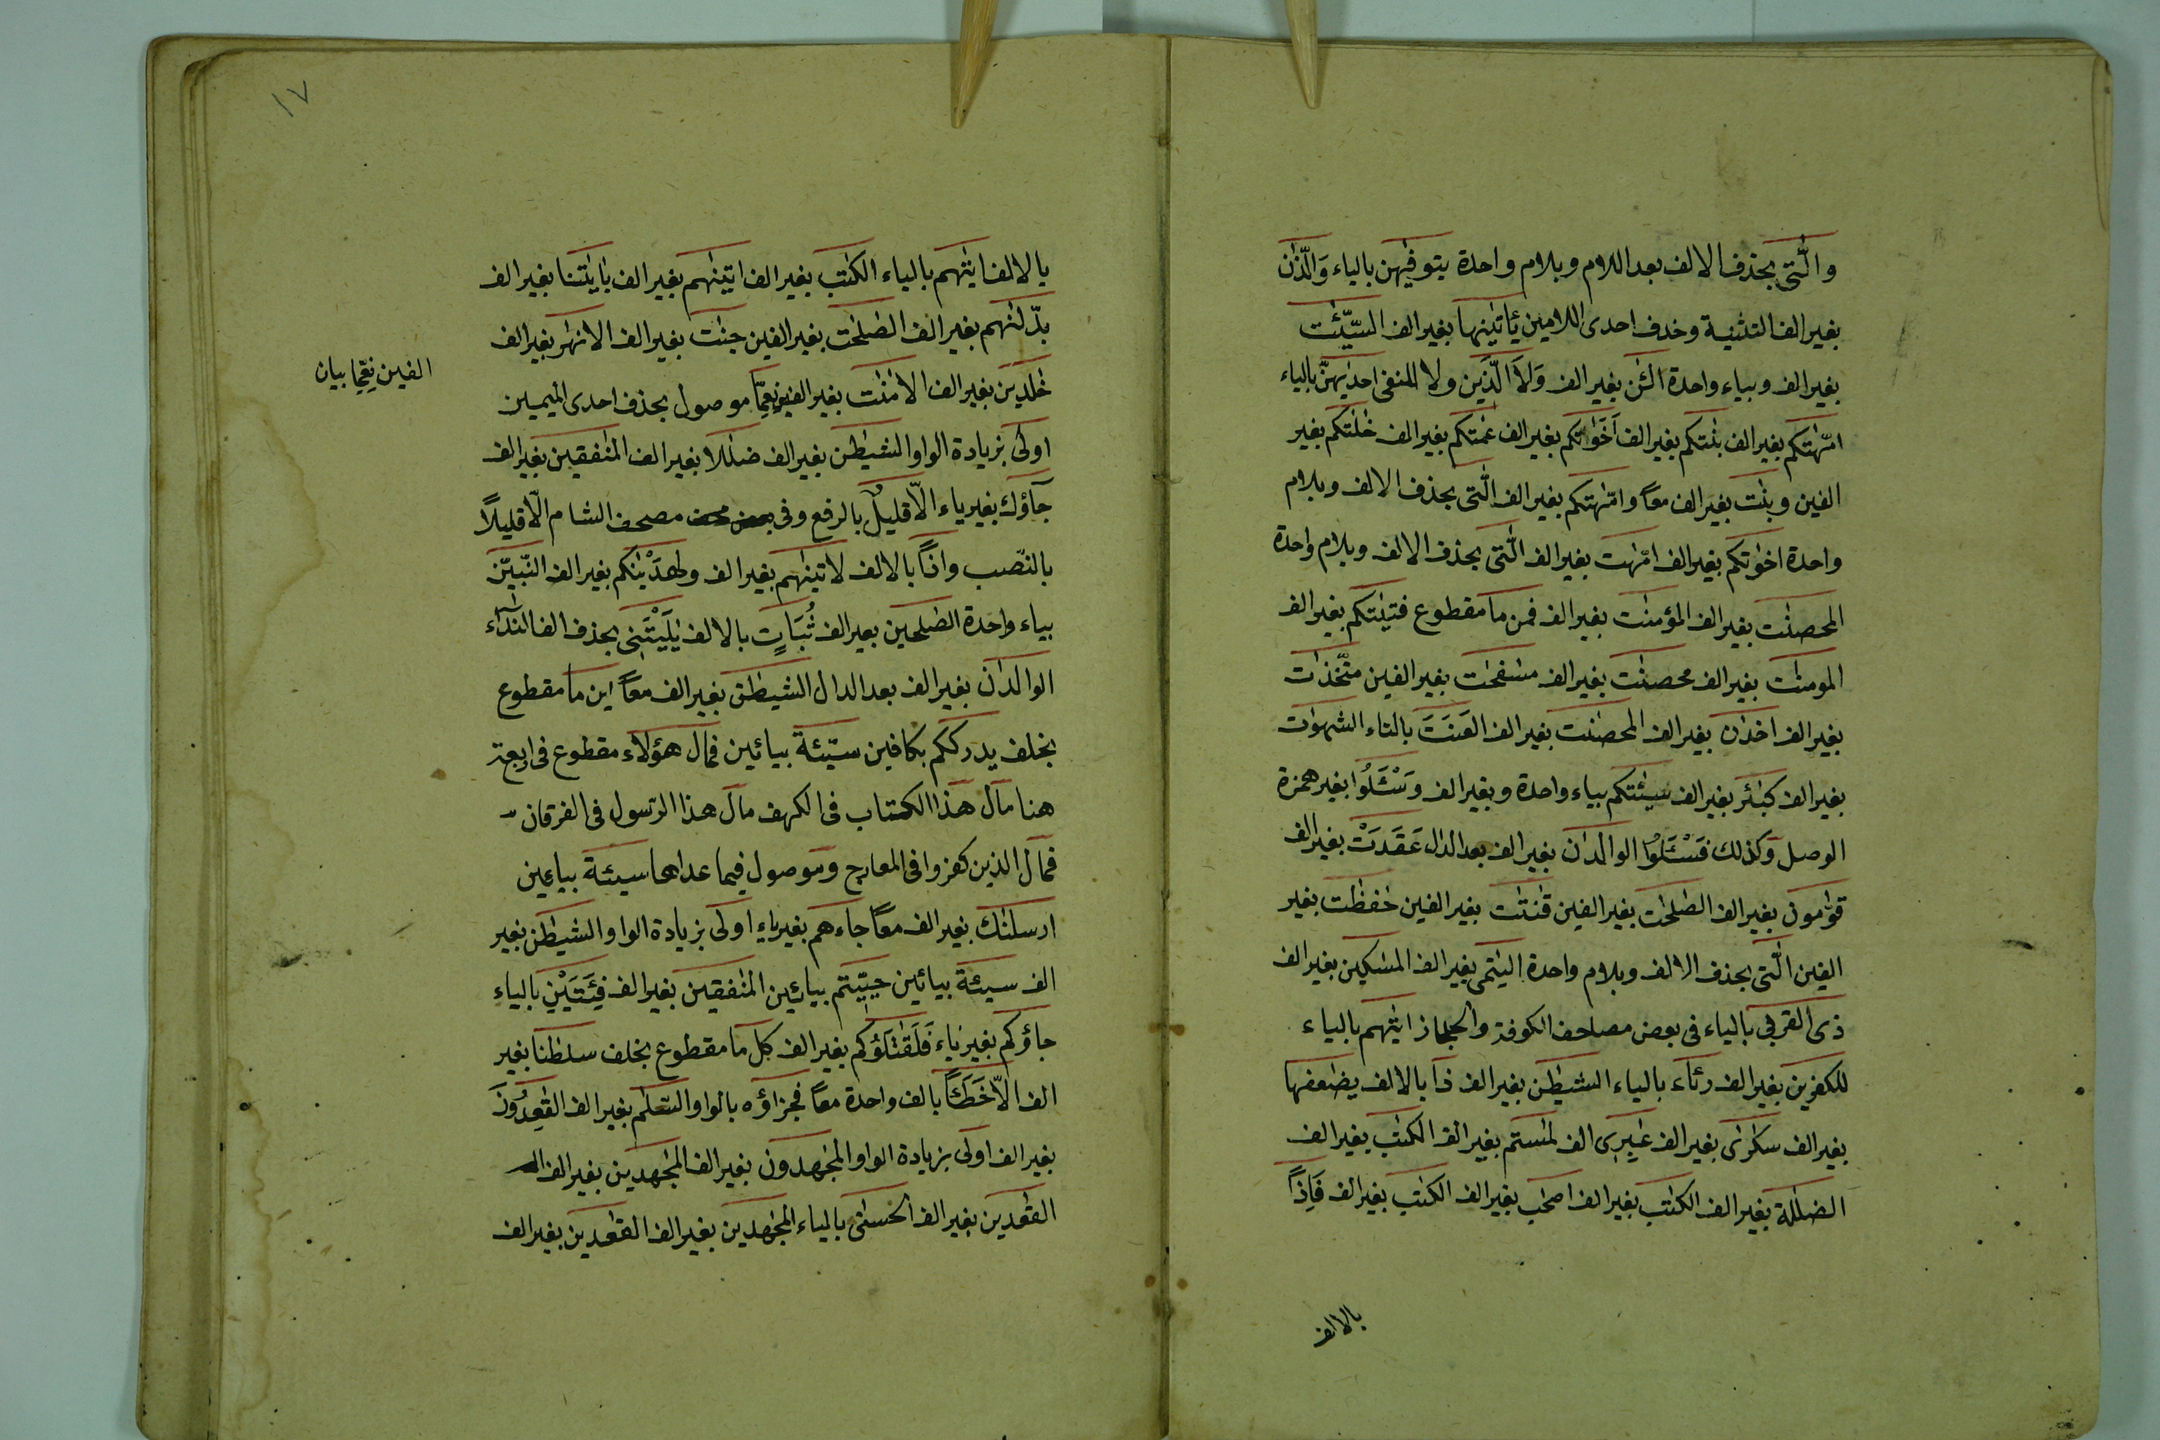 والّتى بحذف الالف بعد اللام وبلام واحدة يتوفيٰهن بالياء وَالَّذٰن
بغير الف التثنية وحذف احدى اللامين يأتيٰنها بغير الف السّيّئٰت
بغير الف وبياء واحدة الـٰٔن بغير الف وَلَا الَّذين ولا للمنفى احديٰهنّ بالياء
امّهٰتكم بغير الف بنٰتكم بغير الف اَخَوٰتكم بغير الف عمّٰتكم بغير الف خٰلٰتكم بغير
الفين وبنٰت بغير الف معًا وامّهٰتكم بغير الف الّٰتى بحذف الالف وبلام
واحدة اخوٰتكم بغير الف امّهٰت بغير الف الّٰتى بحذف الالف وبلام واحدة
المحصنٰت بغير الف المؤمنٰت بغير الف فمن ما مقطوع فتيٰتكم بغير الف
المومنٰت بغير الف محصنٰت بغير الف مسٰفحٰت بغير الفين متّخذٰت
بغير الف اخدٰن بغير الف المحصنٰت بغير الف العَنَتَ بالتاء الشهوٰت
بغير الف كبٰئر بغير الف سيئٰتكم بياء واحدة وبغير الف وَسْـَٔلُوا بغير همزة
الوصل وكذلك فَسْـَٔلُوا الوالدٰن بغير الف بعد الدال عَقَدَتْ بغير الف
قوّٰمون بغير الف الصّٰلحٰت بغير الفين قٰنتٰت بغير الفين حٰفظٰت بغير
الفين الّٰتى بحذف الالف وبلام واحدة اليتٰمى بغير الف المسٰكين بغير الف
ذى القربى بالياء فى بعض مصاحف الكوفة والحجاز اتٰيهم بالياء
للكٰفرين بغير الف رئاء بالياء الشيطٰن بغير الف ذا بالالف يضٰعفها
بغير الف سكٰرٰى بغير الف عٰبرى الف لٰمستم بغير الف الكتٰب بغير الف
الضلٰلة بغير الف الكتٰب بغير الف اصحٰب بغير الف الكتٰب بغير الف فَاِذًا
بالالف
١٧
بالالف اتٰيهم بالياء الكتٰب بغير الف اتينٰهم بغير الف بايٰتنا بغير الف
بدّلنٰهم بغير الف الصّٰلحٰت بغير الفين جنّٰت بغير الف الانهٰر بغير الف
خٰلدين بغير الف الامٰنٰت بغير الفين نِعِمّا موصول بحذف احدى الميمين
الفين نِعِمّا بيان
اولى بزيادة الواو الشيطٰن بغير الف ضلٰلا بغير الف المنٰفقين بغير الف
جآؤك بغير ياء الّا قليلٌ بالرفع وفى مصحف الشام الّا قليلًا
بالنّصب واذًا بالالف لاتينٰهم بغير الف ولهدَيْنٰكم بغير الف النّبيّن
بياء واحدة الصّٰلحين بغير الف ثُبَاتٍ بالالف يٰلَيْتَنِى بحذف الف النداء
الوالدٰن بغير الف بعد الدال الشيطٰن بغير الف معًا اين ما مقطوع
بخلف يدرككم بكافين سيّئة بيائين فمال هؤلاء مقطوع فى اربعة
هنا مال هذا الكتاب فى الكهف مال هذا الرّسول فى الفرقان
فمال الذين كفروا فى المعارج وموصول فيما عداها سيئة بيائين
ارسلنٰك بغير الف معًا جاءهم بغير ياء اولى بزيادة الواو الشيطٰن بغير
الف سيئة بيائين حيّيتم بيائين المنٰفقين بغير الف فِئَتَيْنِ بالياء
جاؤكم بغير ياء فَلَقٰتَلُوكم بغير الف كل ما مقطوع بخلف سلطٰنا بغير
الف الّا خَطَـًٔا بالف واحدة معًا فجزاؤه بالواو السّلٰم بغير الف القٰعِدُونَ
بغير الف اولى بزيادة الواو المجٰهدون بغير الف المجٰهدين بغير الف
القٰعدين بغير الف الحسنٰى بالياء المجٰهدين بغير الف القٰعدين بغير الف